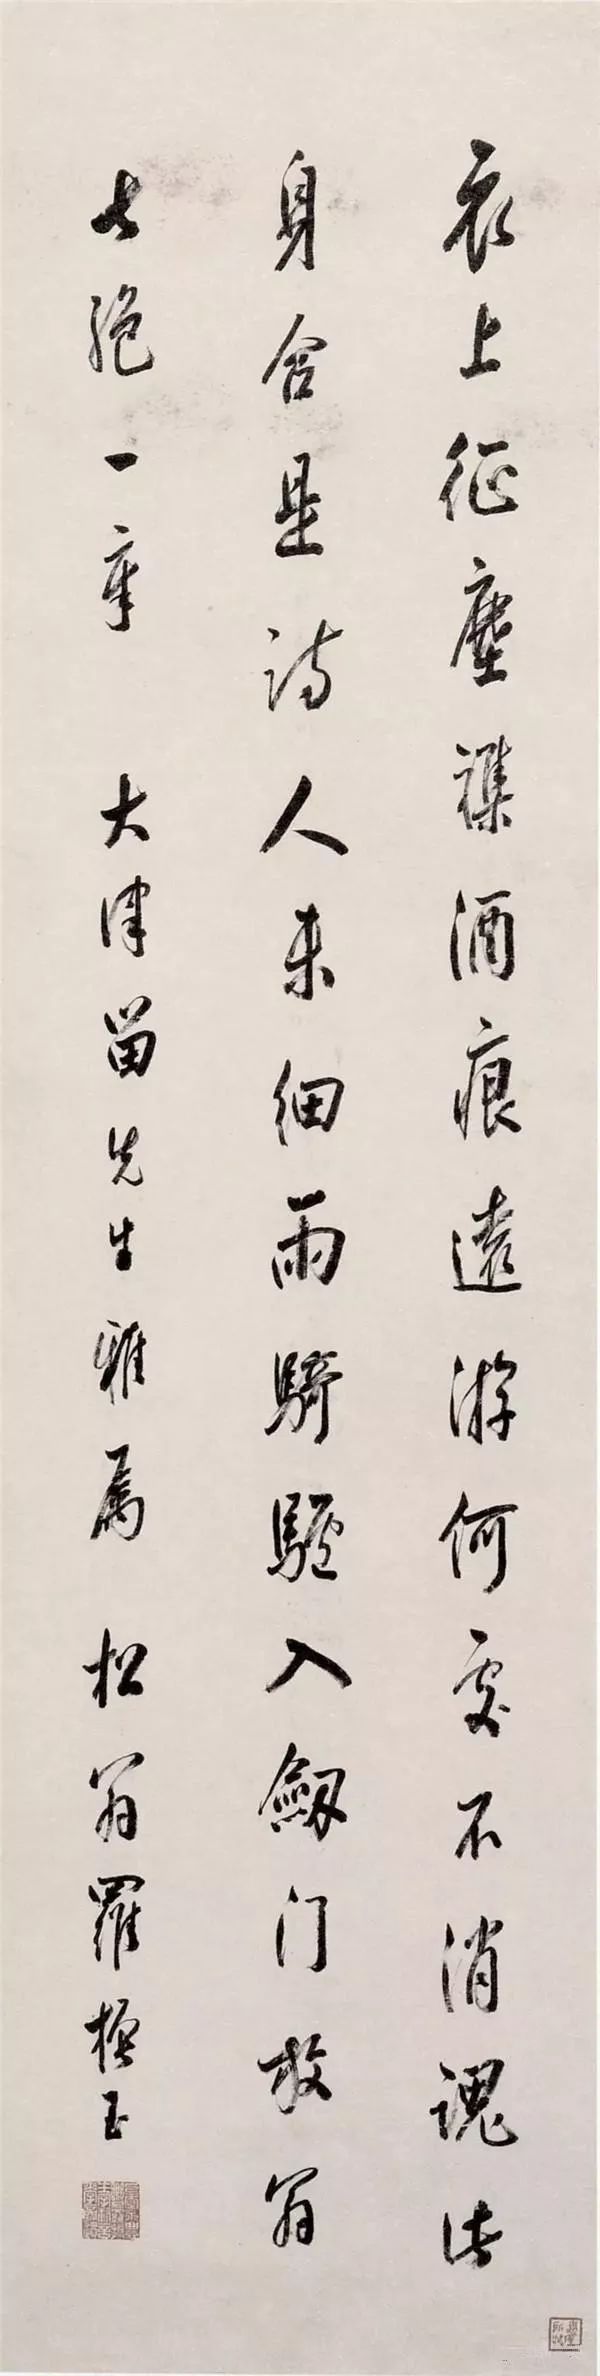 衣上征塵襍酒痕遠游何處不消魂此
身合是詩人未細雨騎驢入劔門放翁
七絕一章 大津留先生雅屬 松翁羅振玉